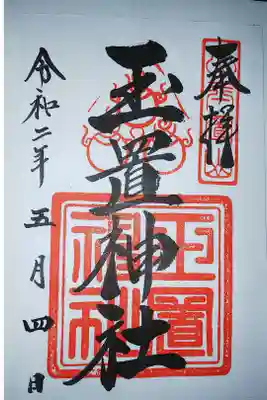 奉拝
玉置神社
令和二年五月四日
玉置
神社